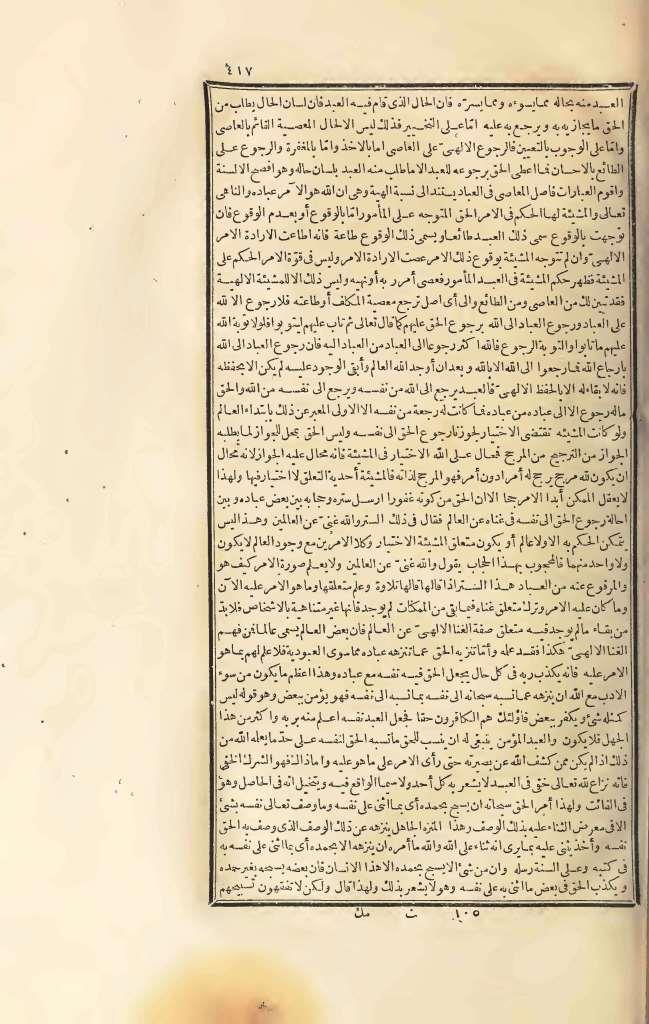 ٤١٧
العبد منه بحاله مما يسوءه ومما يسره فان الحال الذى قام فيه العبد فان لسان الحال يطلب من
الحق ما يجازيه به ويرجع به عليه اما على التخيير فذلك ليس الا لحال المعصية القائم بالعاصى
واما على الوجوب بالتعيين فالرجوع الالهى على العاصى اما بالاخذ واما بالمغفرة والرجوع على
الطائع بالاحسان فما أعطى الحق برجوعه للعبد الا ما طلب منه العبد بلسان حاله وهو أفصح الالسنة
وأقوم العبارات فاصل المعاصى فى العباد يستند الى نسبة الهية وهى ان الله هو الآمر عباده والناهى
تعالى والمشيئة لها الحكم فى الامر الحق المتوجه على المأمور اما بالوقوع أو بعدم الوقوع فان
توجهت بالوقوع سمى ذلك العبد طائعا ويسمى ذلك الوقوع طاعة فانه اطاعت الارادة الامر
الالهى وان لم تتوجه المشيئة بوقوع ذلك الامر عصت الارادة الامر وليس فى قوة الامر الحكم على
المشيئة فظهر حكم المشيئة فى العبد المأمور فعصى أمر ربه أو نهيه وليس ذلك الا للمشيئة الالهية
فقد تبين لك من العاصى ومن الطائع والى أى اصل ترجع معصية المكلف أو طاعته فلا رجوع الا لله
على العباد ورجوع العباد الى الله برجوع الحق عليهم كما قال تعالى ثم تاب عليهم ليتوبوا فلولا توبة الله
عليهم ما تابوا والتوبة الرجوع فالله اكثر رجوعا الى العباد من العباد اليه فان رجوع العباد الى الله
بارجاع الله فما رجعوا الى الله الا بالله وبعد ان أوجد الله العالم وأبقى الوجود عليه لم يكن الا بحفظه
فانه لا بقاء له الا بالحفظ الالهى فالعبد يرجع الى الله من نفسه ويرجع الى نفسه من الله والحق
ماله رجوع الا الى عباده من عباده فما كانت له رجعة من نفسه الا الاولى المعبر عن ذلك بابتداء العالم
ولو كانت المشيئة تقتضى الاختيار لجوزنا رجوع الحق الى نفسه وليس الحق بمحل للجواز لما يطلبه
الجواز من الترجيح من المرجح فمحال على الله الاختيار فى المشيئة فانه محال عليه الجواز لانه محال
ان يكون لله مرجح يرجح له أمرا دون أمر فهو المرجح لذاته فالمشيئة أحدية التعلق لا اختيار فيها ولهذا
لا يعقل الممكن أبدا الا مرجحا الا ان الحق من كونه غفورا ارسل ستره وحجابه بين بعض عباده وبين
احالة رجوع الحق الى نفسه فى غناه عن العالم فقال فى ذلك الستر والله غنى عن العالمين وهذا ليس
يتمكن الحكم به الا ولا عالم أو يكون متعلق المشيئة الاختيار وكلا الامرين مع وجود العالم لا يكون
ولا واحد منهما فالمحجوب بهذا الحجاب يقول والله غنى عن العالمين ولا يعلم صورة الامر كيف هو
والمرفوع عنه من العباد هذا الستر اذا قالها قالها تلاوة وعلم متعلقها وما هو الامر عليه الآن
وما كان عليه الامر وترك متعلق غناه فيما بقى من الممكنات لم يوجد فانها غير متناهية بالاشخاص فلا بد
من بقاء ما لم يوجد فيه متعلق صفة الغنا الالهى عن العالم فان بعض العالم يسمى عالما فمن فهم
الغنا الالهى هكذا فقد علمه وأما تنزيه الحق عما تنزهه عباده مما سوى العبودية فلا علم لهم بما هو
الامر عليه فانه يكذب ربه فى كل حال يجعل الحق فيه نفسه مع عباده وهذا اعظم ما يكون من سوء
الادب مع الله ان ينزهه عما نسبه سبحانه الى نفسه بما نسبه الى نفسه فهو يؤمن ببعض وهو قوله ليس
كمثله شئ ويكفر ببعض فاؤلئك هم الكافرون حقا فجعل العبد نفسه اعلم منه بربه واكثر من هذا
الجهل فلا يكون والعبد المؤمن ينبغى له ان ينسب للحق ما نسبه الحق لنفسه على حد ما يعلمه الله من
ذلك اذا لم يكن ممن كشف الله عن بصيرته حتى رأى الامر على ما هو عليه واما ذا فهو الشرك الخفى
فانه نزاع لله تعالى خفى فى العبد لا يشعر به كل أحد ولا سيما الواقع فيه ويتخيل انه فى الحاصل وهو
فى الفائت ولهذا أمر الحق سبحانه ان يسبح بحمده أى بما اثنى على نفسه وما وصف تعالى نفسه بشئ
الا فى معرض الثناء عليه بذلك الوصف وهذا المنزه الجاهل ينزهه عن ذلك الوصف الذى وصف به الحق
نفسه وأخذ يثنى عليه بما يرى انه ثناء على الله والله ما أمره ان ينزهه الا بحمده أى بما اثنى على نفسه به
فى كتبه وعلى ألسنة رسله وان من شئ الا يسبح بحمده الا هذا الانسان فان بعضه يسبحه بغير حمده
ويكذب الحق فى بعض ما اثنى به على نفسه وهو لا يشعر بذلك ولهذا قال ولكن لا تفقهون تسبيحهم
١٠٥ ت مك